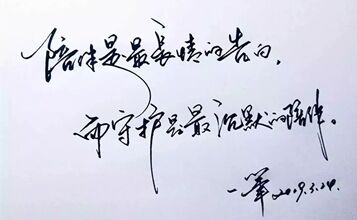 陪伴是最长情的告白，
而守护是最沉默的陪伴。
一笔 2019.3.24.